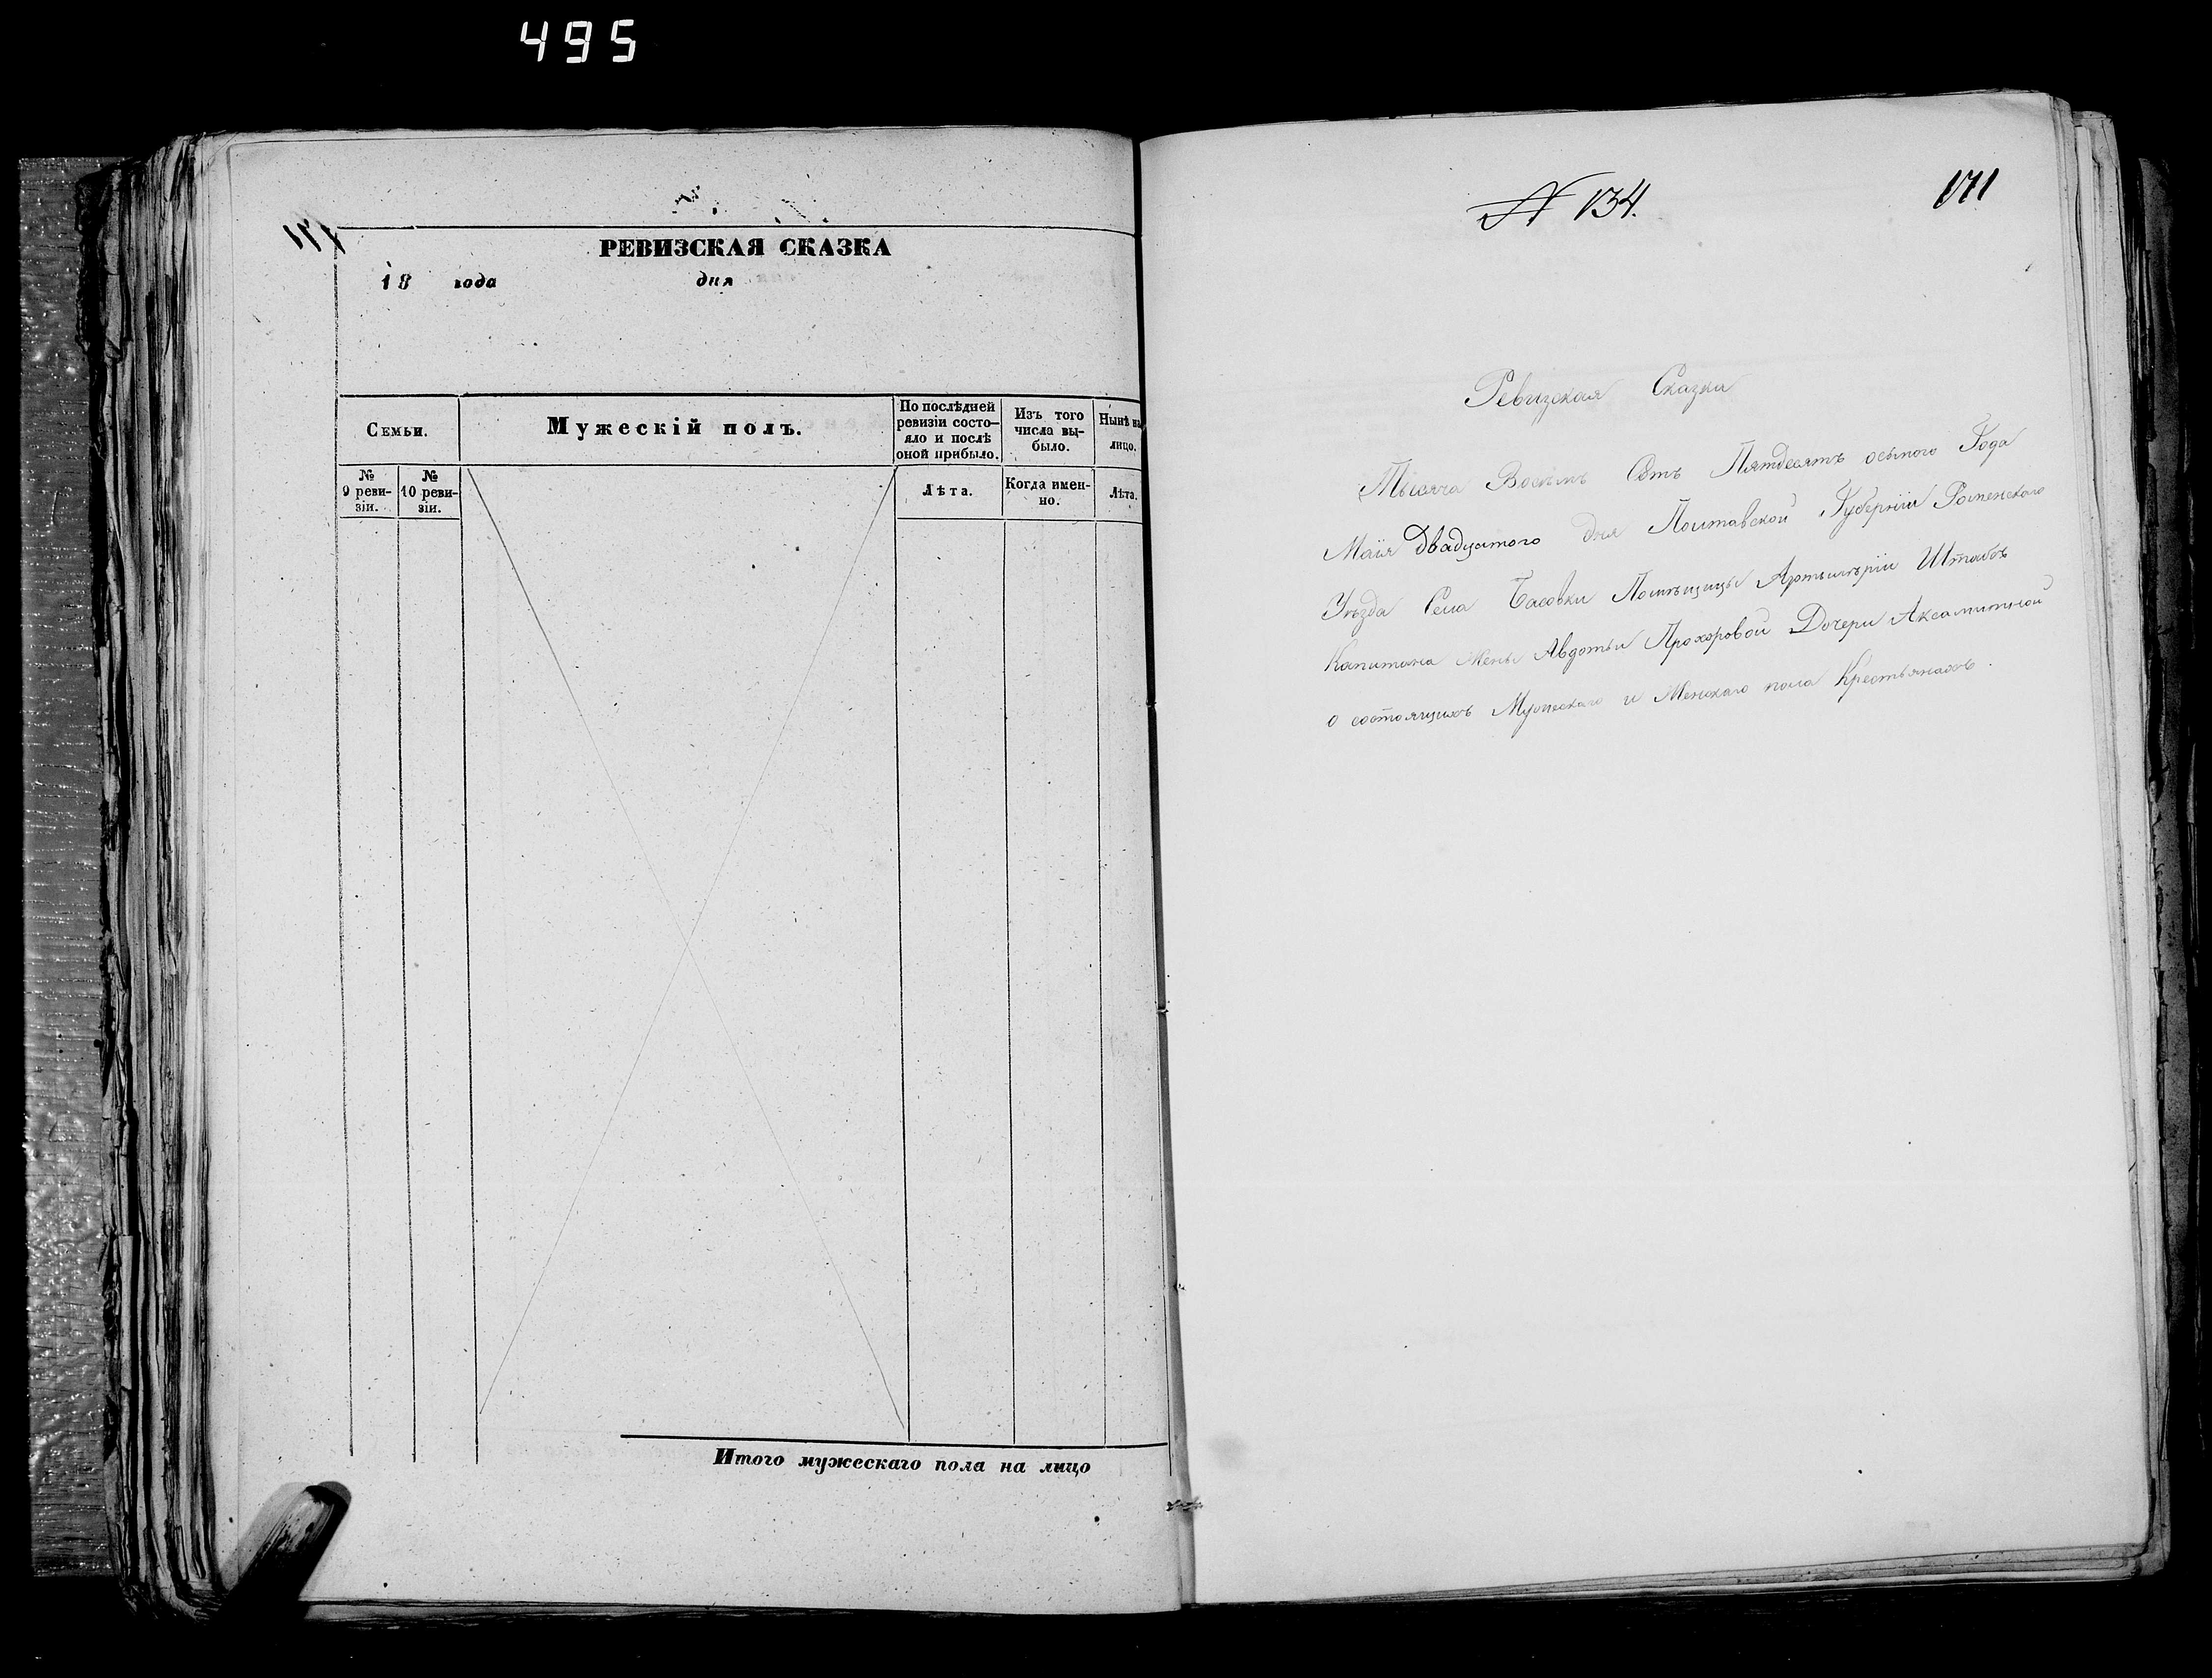 495
РЕВИЗСКАЯ СКАЗКА
18 года дня
Семьи.
Мужескій полъ.
По послѣдней ревизіи состо-
яло и послѣ оной прибыло.
Изъ того числа вы-
было.
Нынѣ на лицо.
№ 9 реви-
зіи.
№ 10 реви-
зіи.
Лѣта.
Когда имен-
но.
Лѣта.
Итого мужескаго пола на лицо
№ 134.
171
Ревизская Сказки
Тысяча Восемь Сотъ Пятдесятъ осьмого Года
Маія двадцатого дня Полтавской Губерніи Роменскаго
Уѣзда Села Басовки Помѣщицы Артилѣріи Штабъ
Капитана Жены Авдотьи Прохоровой Дочери Аксамитной
о состоящихъ Мужескаго и Женскаго пола Крестьянахъ.